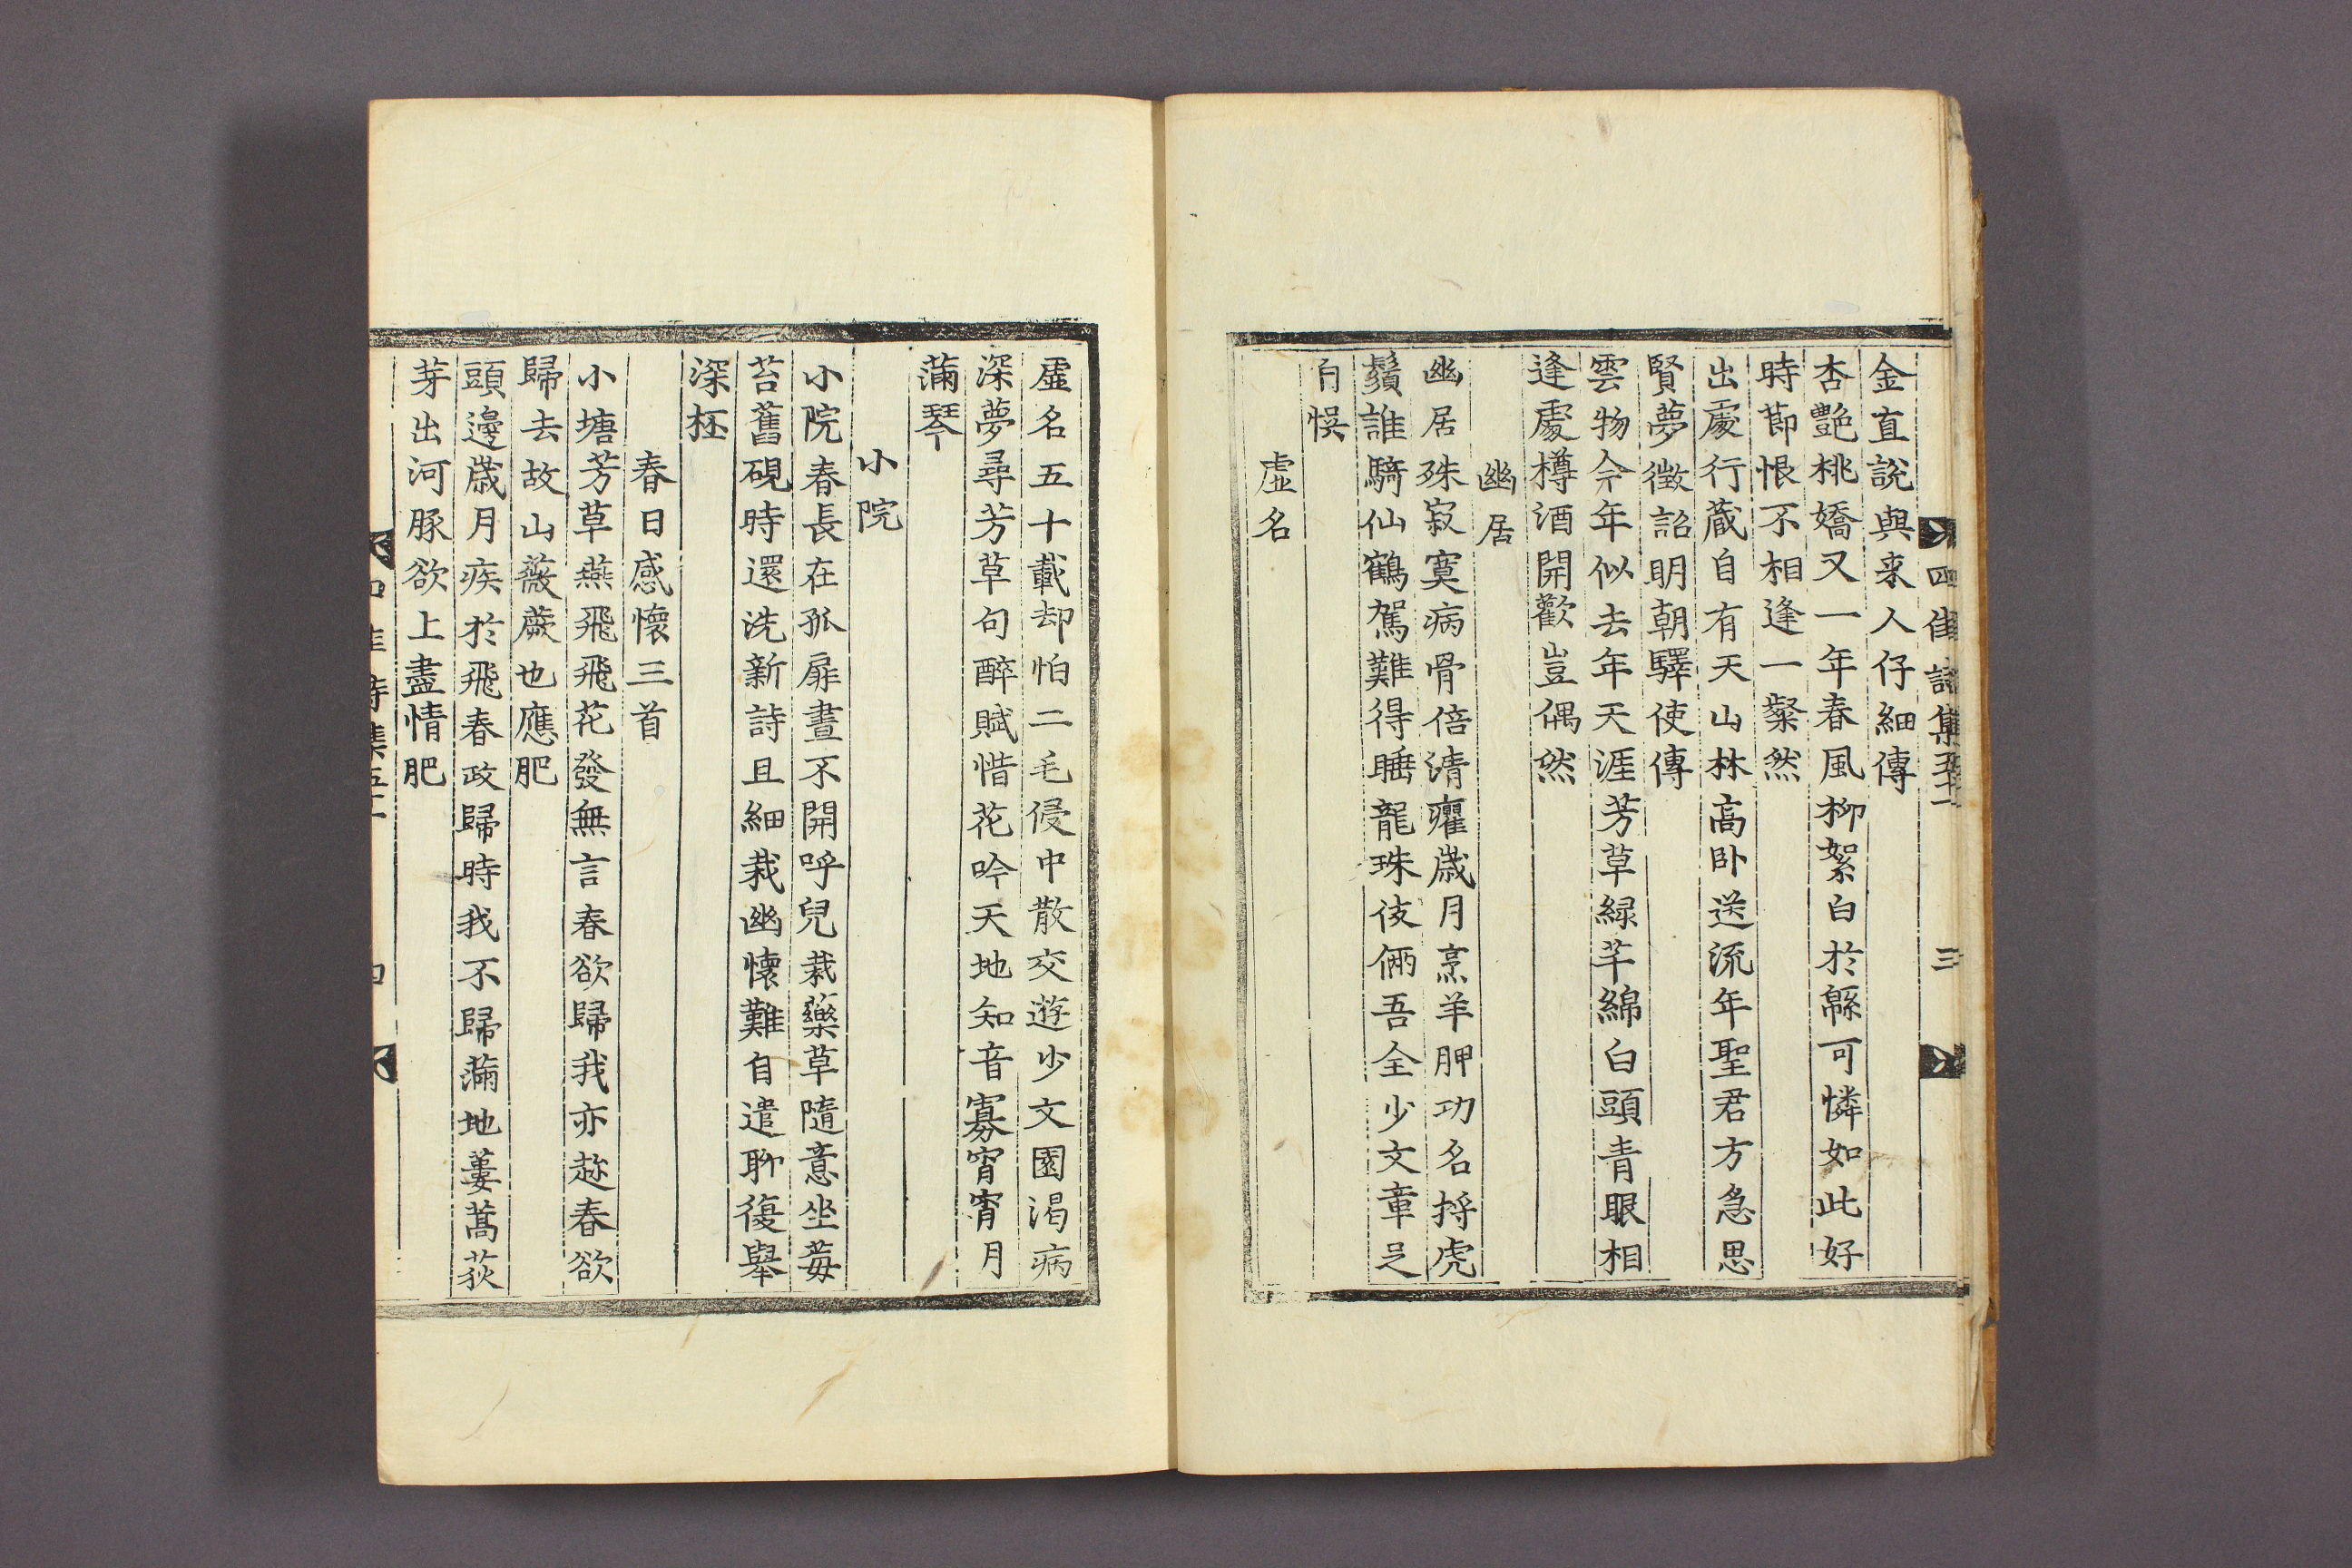 四佳詩集五十一 三
金直說與來人仔細傳
杏艷桃嬌又一年春風柳絮白於緜可憐如此好
時節恨不相逢一粲然
出處行藏自有天山林高卧送流年聖君方急思
賢夢徵詔明朝驛使傳
雲物今年似去年天涯芳草緑芊綿白頭青眼相
逢處樽酒開歡豈偶然
幽居
幽居殊寂寞病骨倍清癯歲月烹羊胛功名捋虎
鬚誰騎仙鶴駕難得睡龍珠伎倆吾全少文章足
自悞
虛名
虛名五十載却怕二毛侵中散交遊少文園渴病
深夢尋芳草句醉賦惜花吟天地知音寡宵宵月
滿琴
小院
小院春長在孤扉晝不開呼兒栽藥草隨意坐莓
苔舊硯時還洗新詩且細裁幽懷難自遣聊復擧
深杯
春日感懷三首
小塘芳草燕飛飛花發無言春欲歸我亦趂春欲
歸去故山薇蕨也應肥
頭邊歲月疾於飛春政歸時我不歸滿地蔞蒿荻
芽出河豚欲上盡情肥